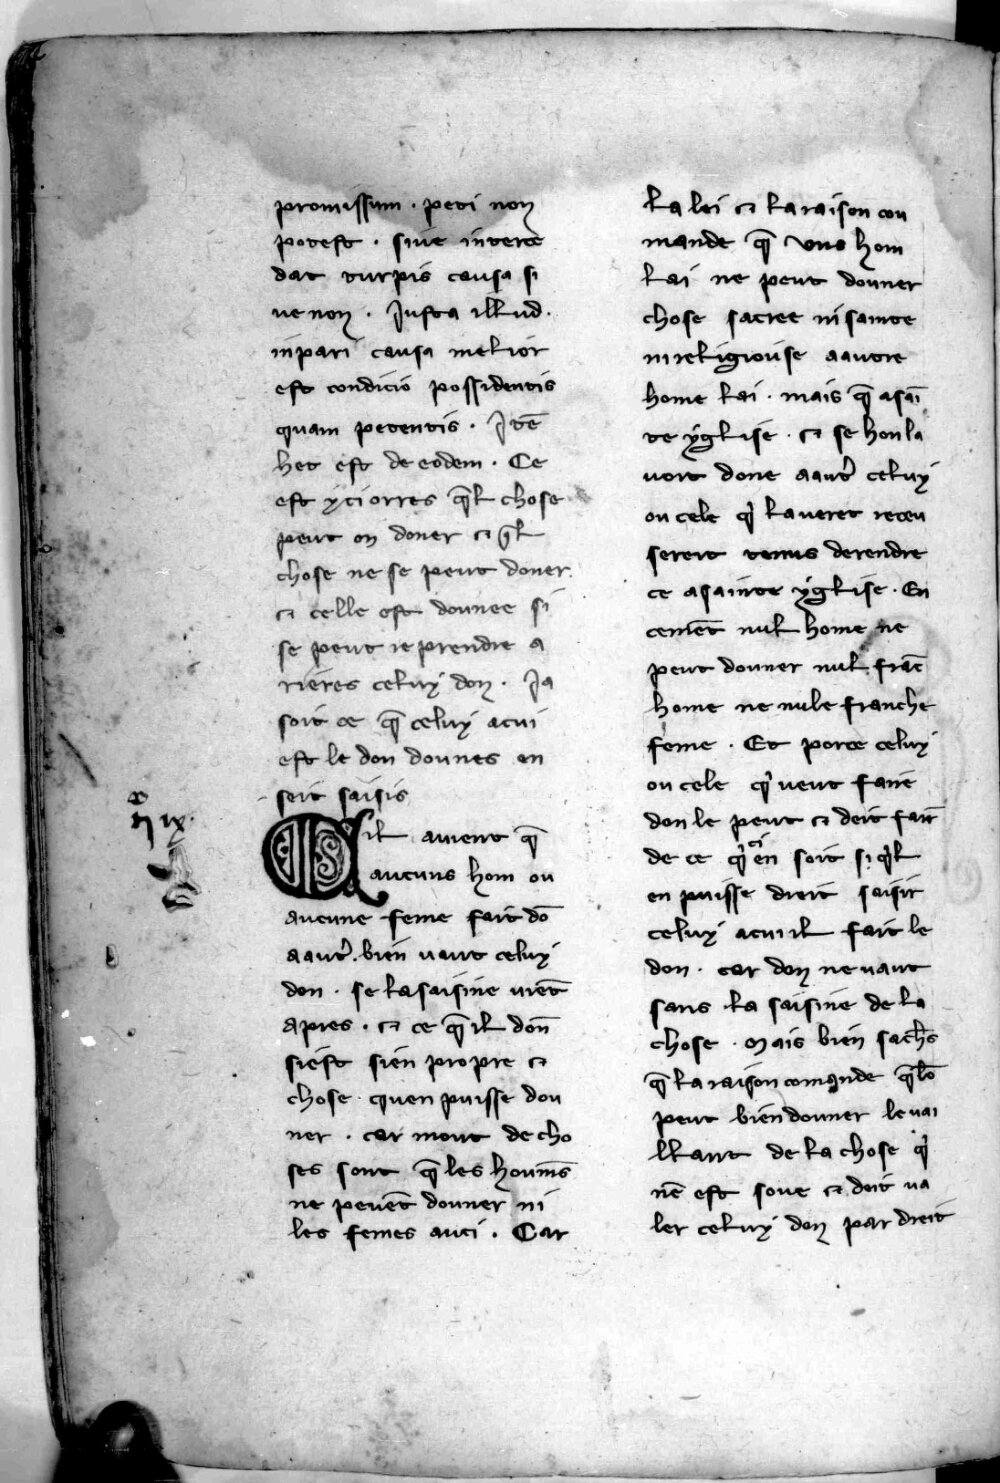 promissum . peti non
potest . sive interce
dat turpis causa si
ve non . Justa illud .
in pari causa melior
est condicio possidentis
quam petentis . Itē
hec est de eodem . Ce
est yci orres q̄l chose
peut on doner ⁊ q̄l
chose ne se peut doner .
⁊ celle est donnee si
se peut reprendre a
rieres celuy don . Ja
soit ce q̄ celuy acui
est le don donnes en
seit saisis
Sil avient q̄
aucuns hom ou
aucune feme fait dō
a autr̾ . bien vaut celuy
don . se la saisine viēt
apres . ⁊ ce q̄ il don̄
si est sien propre ⁊
chose quen puisse don
ner . car mout de cho
ses sont q̄ les houm̄s
ne pevēt donner ni
les femes auci . Car
la lei ⁊ la raison con
mande q̄ vns hom
lai ne peut donner
chose sacree ni sainte
ni religiouse a autre
home lai . mais q̄ a sai̅
te yglise . ⁊ se hon la
voit done a autr̾ celuy
ou cele qͥ laveret receu
sereit tenus derendre
ce a sainte yglise . En
cemēt nul home ne
peut donner nul frāc
home ne nule franche
feme . Et por ce celuy
ou cele qͥ veut faire
don le peut ⁊ deit fair̄
de ce qͥ en soit si qͥl
en puisse dreit saisir
celuy acui il fait le
don . car don ne vaut
sans la saisine de la
chose . Mais bien sach̄s
q̄ la raison comande q̄ lō
peut bien donner le vai
llant de la chose qͥ
nē est soue ⁊ doit va
ler celuy don par dreit